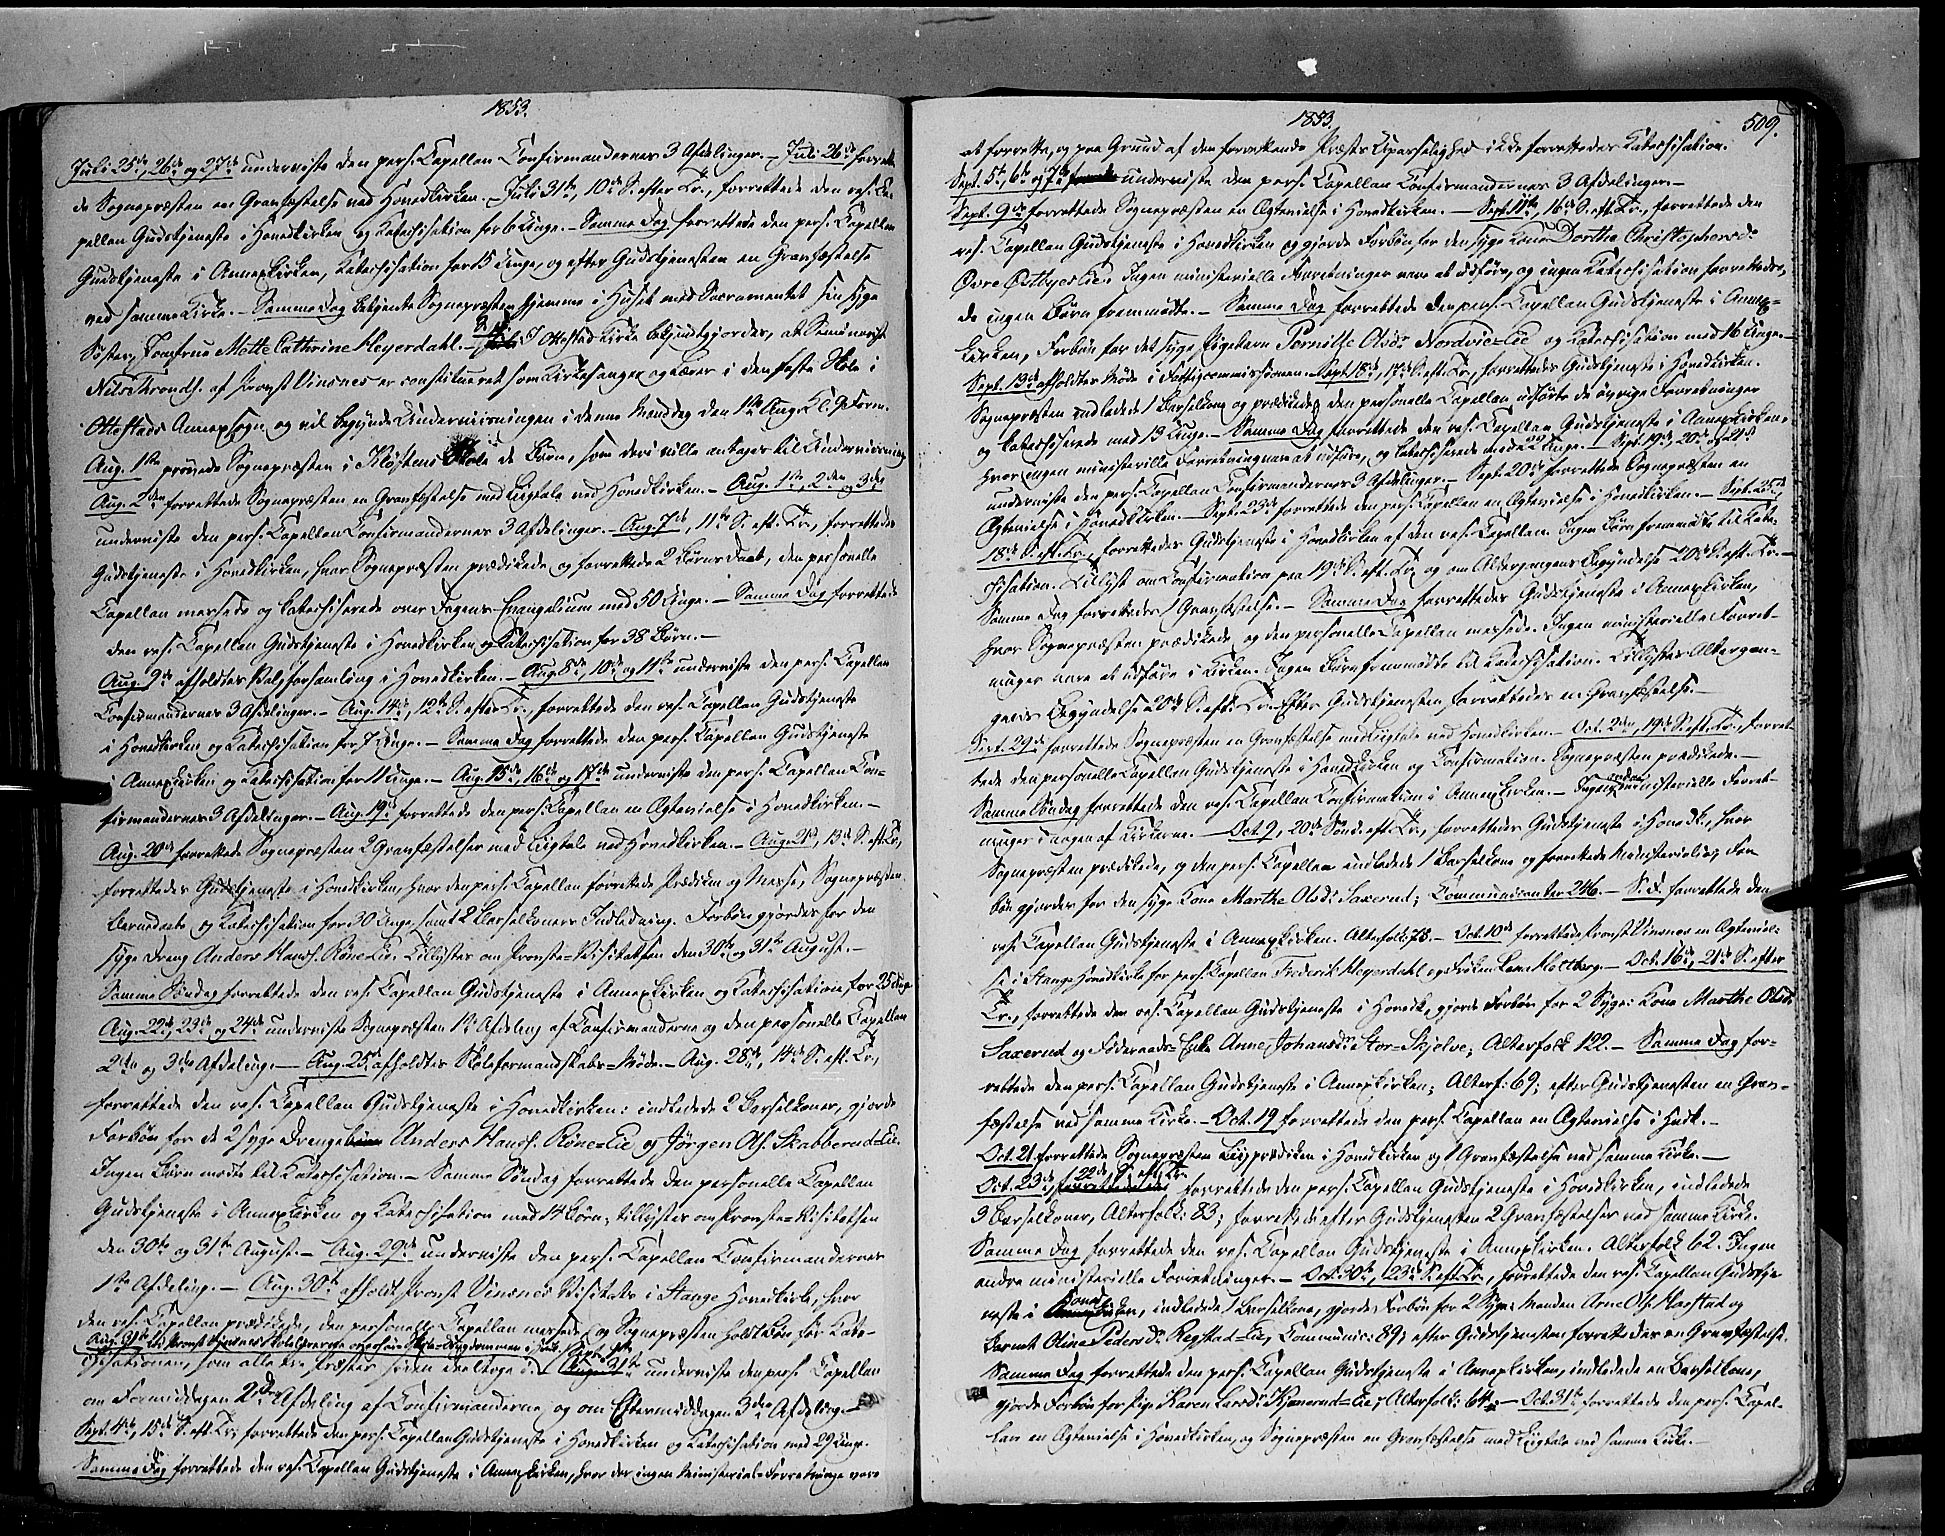 1853.
Juli 25de, 26de og 27de underviste den pers. Capellan Confirmandernes 3 Afdelinger. – Juli 26de forrette-
de Sognepræsten en Gravfæstelse ved Hovedkirken. – Juli 31te, 10de S. efter Tr., forrettede den res. Ca-
pellan Gudstjeneste i Hovedkirken og Katechisation for 6 Unge. – Samme Dag forrettede den pers. Capellan
Gudstjeneste i Annexkirken, Katechisation for 15 Unge, og efter Gudstjenesten en Gravfæstelse
ved samme Kirke. – Samme Dag betjente Sognepræsten hjemme i Huset med Sacramentet sin syge
Søster, Jomfrue Mette Cathrine Heyerdahl. – I Ottestad Kirke bekjendtgjordes, at Seminarist
Nils Throndh. af Provst Vinsnes er constitueret som Kirkesanger og Lærer i den faste Skole i
Ottestads Annexsogn og vil begynde Underviisningen i denne Mandag den 1ste Aug. Kl. 9 Form.
Aug. 1ste prøvede Sognepræsten i Klöstens Skole de Børn, som deri ville antages til Underviisning
Aug. 2den forrettede Sognepræsten en Gravfæstelse med Liigtale ved Hovedkirken. – Aug. 1ste, 2den og 3die
underviste den pers. Capellan Confirmandernes 3 Afdelinger. – Aug. 7de, 11te S. eft. Tr., forrettedes
Gudstjeneste i Hovedkirken, hvor Sognepræsten prædikede og forrettede 2 Børns Daab, den personelle
Capellan messede og katechiserede over Dagens Evangelium med 50 Unge. – Samme Dag forrettede
den res. Capellan Gudstjeneste i Hovedkirken og Katechisation for 38 Børn. –
Aug. 9de afholdtes Valgforsamling i Hovedkirken. – Aug. 8de, 10de og 11te underviste den pers. Capellan
Confirmandernes 3 Afdelinger. – Aug. 14de, 12te S. efter Tr., forrettede den res. Capellan Gudstjeneste
i Hovedkirken og Katechisation for 7 Unge. – Samme Dag forrettede den pers. Capellan Gudstjeneste
i Annexkirken og Katechisation for 11 Unge. – Aug. 15de, 16de og 17de underviste den pers. Capellan Con-
firmandernes 3 Afdelinger. – Aug. 19de forrettede den pers. Capellan en Ægtevielse i Hovedkirken. –
Aug. 20de forrettede Sognepræsten 2 Gravfæstelser med Liigtale ved Hovedkirken. – Aug. 21de, 13de S. eft. Tr.,
forrettedes Gudstjeneste i Hovedkirken, hvor den pers. Capellan forrettede Prædiken og Messe, Sognepræsten
Barnedaab og Katechisation for 30 Unge, samt 2 Barselkoners Indledning. Forbøn gjordes for den
syge Dreng Anders Hansk. Röne-Eie. Tillystes om Provste-Visitatsen den 30te og 31te August. –
Samme Søndag forrettede den res. Capellan Gudstjeneste i Annexkirken og Katechisation for 25 Unge
Aug. 22de, 23de og 24de underviste Sognepræsten 1ste Afdeling af Confirmanderne og den personelle Capellan
2den og 3die Afdeling. – Aug. 25de afholdtes Skoleformandskabs-Møde. – Aug. 28de, 14de S. eft. Tr.,
forrettede den res. Capellan Gudstjeneste i Hovedkirken: indledede 2 Barselkoner, gjorde
Forbøn for de 2 syge Drenge Anders Hansk. Röne-Eie og Jørgen Ols. Skabberud-Eie.
Ingen Børn mødte til Katechisation. – Samme Søndag forrettede den personelle Capellan
Gudstjeneste i Annexkirken og Katechisation med 14 Børn; tillystes om Provste-Visitatsen
den 30te og 31te August. – Aug. 29de underviste den pers. Capellan Confirmandernes
1ste Afdeling. – Aug. 30te afholdt Provst Vinsnes Visitats i Stange Hovedkirke, hvor
den res. Capellan prædikede, den personelle Capellan messede og Sognepræsten holdt Bøn før Kate-
Aug. 31te
chisationen, som alle tre Præster siden deeltoge i. Aug. 31te underviste den pers. Capellan
om Formiddagen 2den Afdeling af Confirmanderne og om Eftermiddagen 3die Afdeling. –
Sept. 4de, 15de S. eft. Tr., forrettede den pers. Capellan Gudstjeneste i Hovedkirken og Katechisation med 29 Unge.
Samme Dag forrettede den res. Capellan Gudstjeneste i Annexkirken, hvor der ingen Ministerial-Forretninge vare
1853.
509.
at forrette, og paa Grund af den forrettende Præsts Upasselighed ikke forrettedes Katechisation.
Sept. 5te, 6te og 7de underviste den pers. Capellan Confirmandernes 3 Afdelinger. –
Sept. 9de forrettede Sognepræsten en Ægtevielse i Hovedkirken. – Sept. 11te, 16de S. eft. Tr., forrettede den
res. Capellan Gudstjeneste i Hovedkirken og gjorde Forbøn for den syge Kone Dorthe Christophersd.
Øvre Østbye-Eie. Ingen ministerielle Forretninger vare at udføre, og ingen Katechisation forrettedes,
da ingen Børn fremmødte. – Samme Dag forrettede den pers. Capellan Gudstjeneste i Annex-
kirken, Forbøn for det syge Pigebarn Pernille Olsdr. Nordvic-Eie og Katechisation med 16 Unge. –
Sept. 13de afholdtes Møde i Fattigcommissionen. – Sept. 18de, 17de S. eft. Tr., forrettedes Gudstjeneste i Hovedkirken.
Sognepræsten indledede 1 Barselkone og prædikede, den personelle Capellan udførte de øvrige Forretninger
og katechiserede med 13 Unge. – Samme Dag forrettede den res. Capellan Gudstjeneste i Annexkirken,
hvor ingen ministerielle Forretninger vare at udføre, og katechiserede med 22 Unge. – Sept. 19de, 20de og 21de
underviste den pers. Capellan Confirmandernes 3 Afdelinger. – Sept. 20de forrettede Sognepræsten en
Ægtevielse i Hovedkirken. – Sept. 23de forrettede den pers. Capellan en Ægtevielse i Hovedkirken. – Sept. 25de,
18de S. eft. Tr., forrettedes Gudstjeneste i Hovedkirken af den res. Capellan. Ingen Børn fremmødte til Kate-
chisation. Tillyst om Confirmation paa 19de S. eft. Tr. og om Altergangens Begyndelse 20de S. eft. Tr. –
Samme Dag forrettedes 1 Gravfæstelse. – Samme Dag forrettedes Gudstjeneste i Annexkirken,
hvor Sognepræsten prædikede og den personelle Capellan messede. Ingen ministerielle Forret-
ninger vare at udføre i Kirken. Ingen Børn fremmødte til Katechisation. Tillystes Altergan-
gens Begyndelse 20de S. eft. Tr. Efter Gudstjenesten forrettedes en Gravfæstelse. –
Sept. 29de forrettede Sognepræsten en Gravfæstelse med Liigtale ved Hovedkirken. – Oct. 2den, 19de S. eft. Tr., forret-
tede den personelle Capellan Gudstjeneste i Hovedkirken og Confirmation. Sognepræsten prædikede. –
Samme Søndag forrettede den res. Capellan Confirmation i Annexkirken. – Ingen andre ministerielle Forret-
ninger i nogen af Kirkerne. – Oct. 9, 20de Sønd. eft. Tr., forrettedes Gudstjeneste i Hovedk., hvor
Sognepræsten prædikede, og den pers. Capellan indledede 1 Barselkone og forrettede Ministerialia; For-
bøn gjordes for den syge Kone Marthe Olsdr. Saxerud; Communicanter 246. – S. D. forrettede den
res. Capellan Gudstjeneste i Annexkirken. Alterfolk: 78. – Oct. 10de forrettede Provst Vinsnes en Ægteviel-
se i Stange Hovedkirke for pers. Capellan Frederik Heyerdahl og Frøken Lene Moltberg. – Oct. 16de, 21de S. efter
Tr., forrettede den res. Capellan Gudstjeneste i Hovedk., gjorde Forbøn for 2 Syge: Kone Marthe Olsdr.
Saxerud og Føderaads-Enke Anne Johansdr. Stor-Skjelve; Alterfolk 122. – Samme Dag for-
rettede den pers. Capellan Gudstjeneste i Annexkirken; Alterf.: 69; efter Gudstjenesten en Grav-
fæstelse ved samme Kirke. – Oct. 19 forrettede den pers. Capellan en Ægtevielse i Hvdk. –
Oct. 21 forrettede Sognepræsten Liigprædiken i Hovedkirken og 1 Gravfæstelse ved samme Kirke. –
Oct. 23de, 22de S. eft. Tr. forrettede den pers. Capellan Gudstjeneste i Hovedkirken, indledede
3 Barselkoner, Alterfolk: 83; forrett. efter Gudstjenesten 2 Gravfæstelser ved samme Kirke.
Samme Dag forrettede den res. Capellan Gudstjeneste i Annexkirken. Alterfolk 62. Ingen
andre ministerielle Forretninger. – Oct. 30te, 23de S. eft. Tr., forrettede den res. Capellan Gudstje-
neste i Hovedkirken, indledede 1 Barselkone, gjorde Forbøn for 2 Syge: Manden Arne Ols. Harstad og
Barnet Oline Pedersdr. Regstad-Eie, Communic.: 89; efter Gudstjenesten forrettedes en Gravfæstelse.
Samme Dag forrettede den pers. Capellan Gudstjeneste i Annexkirken, indledede en Barselkone,
gjorde Forbøn for Pige Karen Larsdr. Kjonerud-Eie; Alterfolk: 64. – Oct. 31te forrettede den pers. Capel-
lan en Ægtevielse i Hovedkirken, og Sognepræsten en Gravfæstelse med Liigtale ved samme Kirke. –